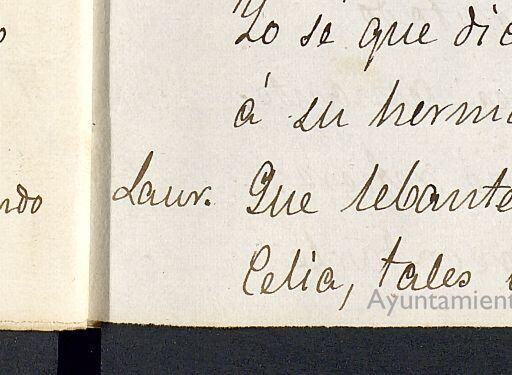 Yo sé que dic
á su herm
Laur. Que lebante
Celia, tales
Ayuntamient